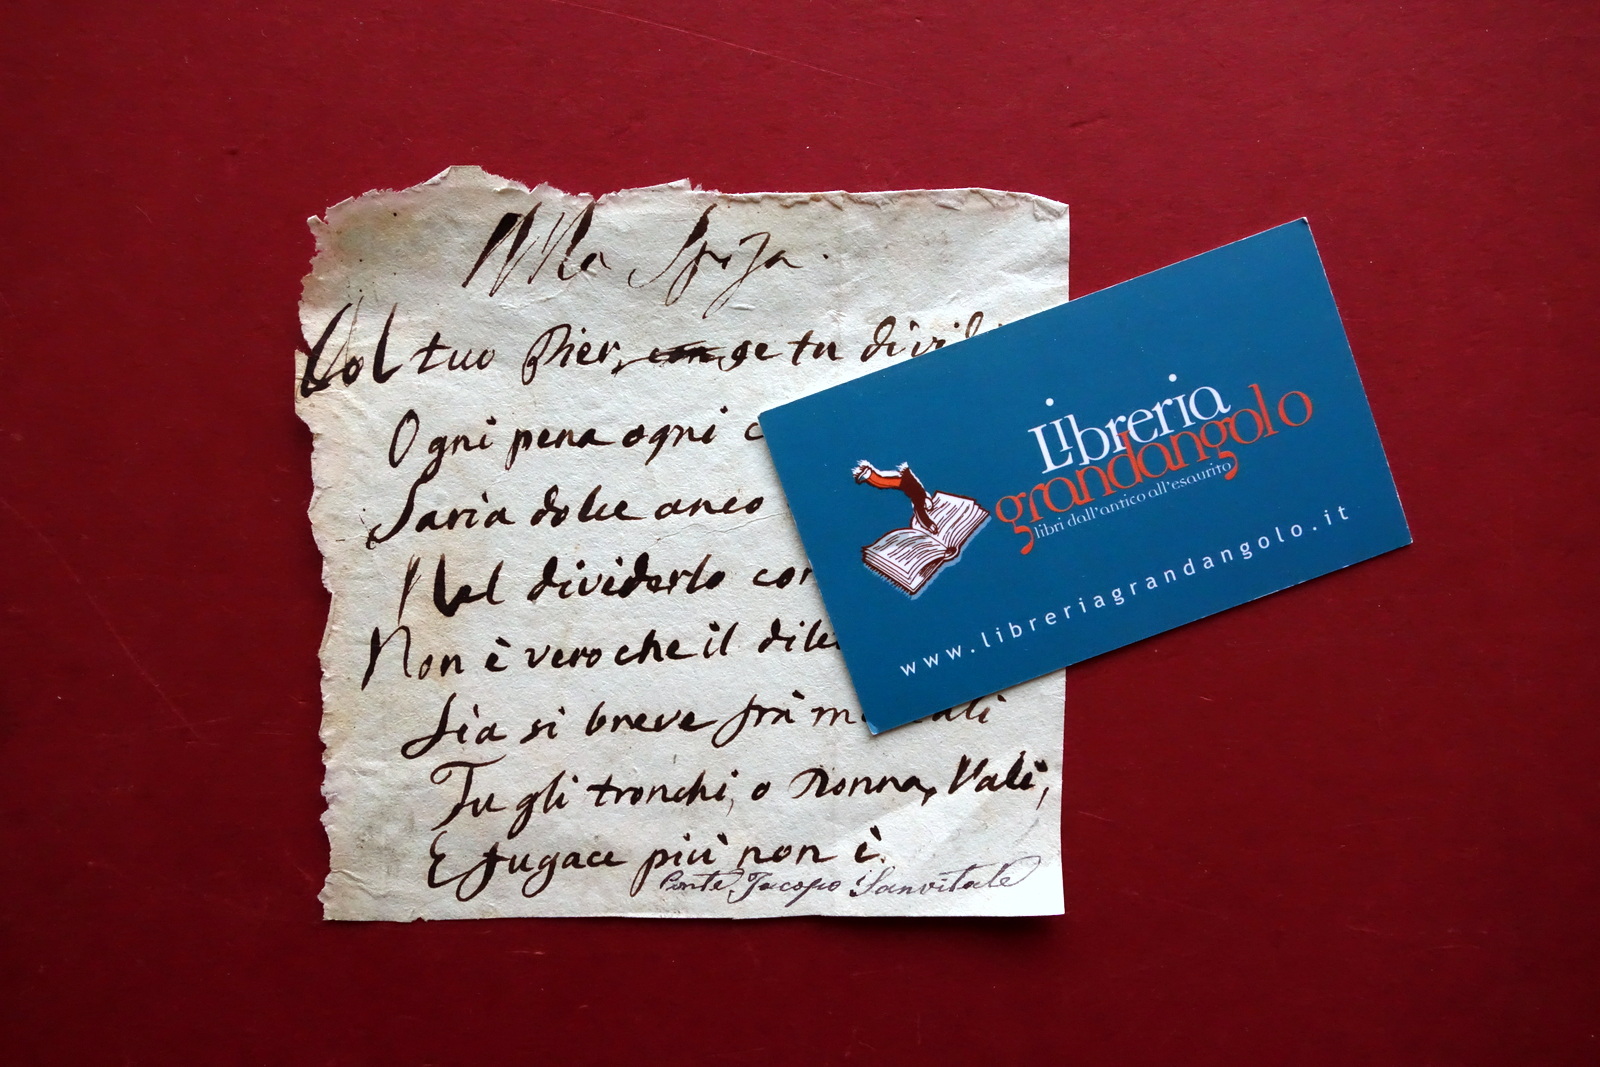 Alla Spiza.
Col tuo Pier, con se tu dividi
Ogni pena ogni
Saria dolce anco
Nel dividerlo con
Non è vero che il
Sia si breve frà
Tu gli tronchi, o Nonna, Vali,
E fugace più non è.
Conte Jacopo Sanvitale
Libreria
grandangolo
libri dall'antico all'esaurito
www.libreriagrandangolo.it